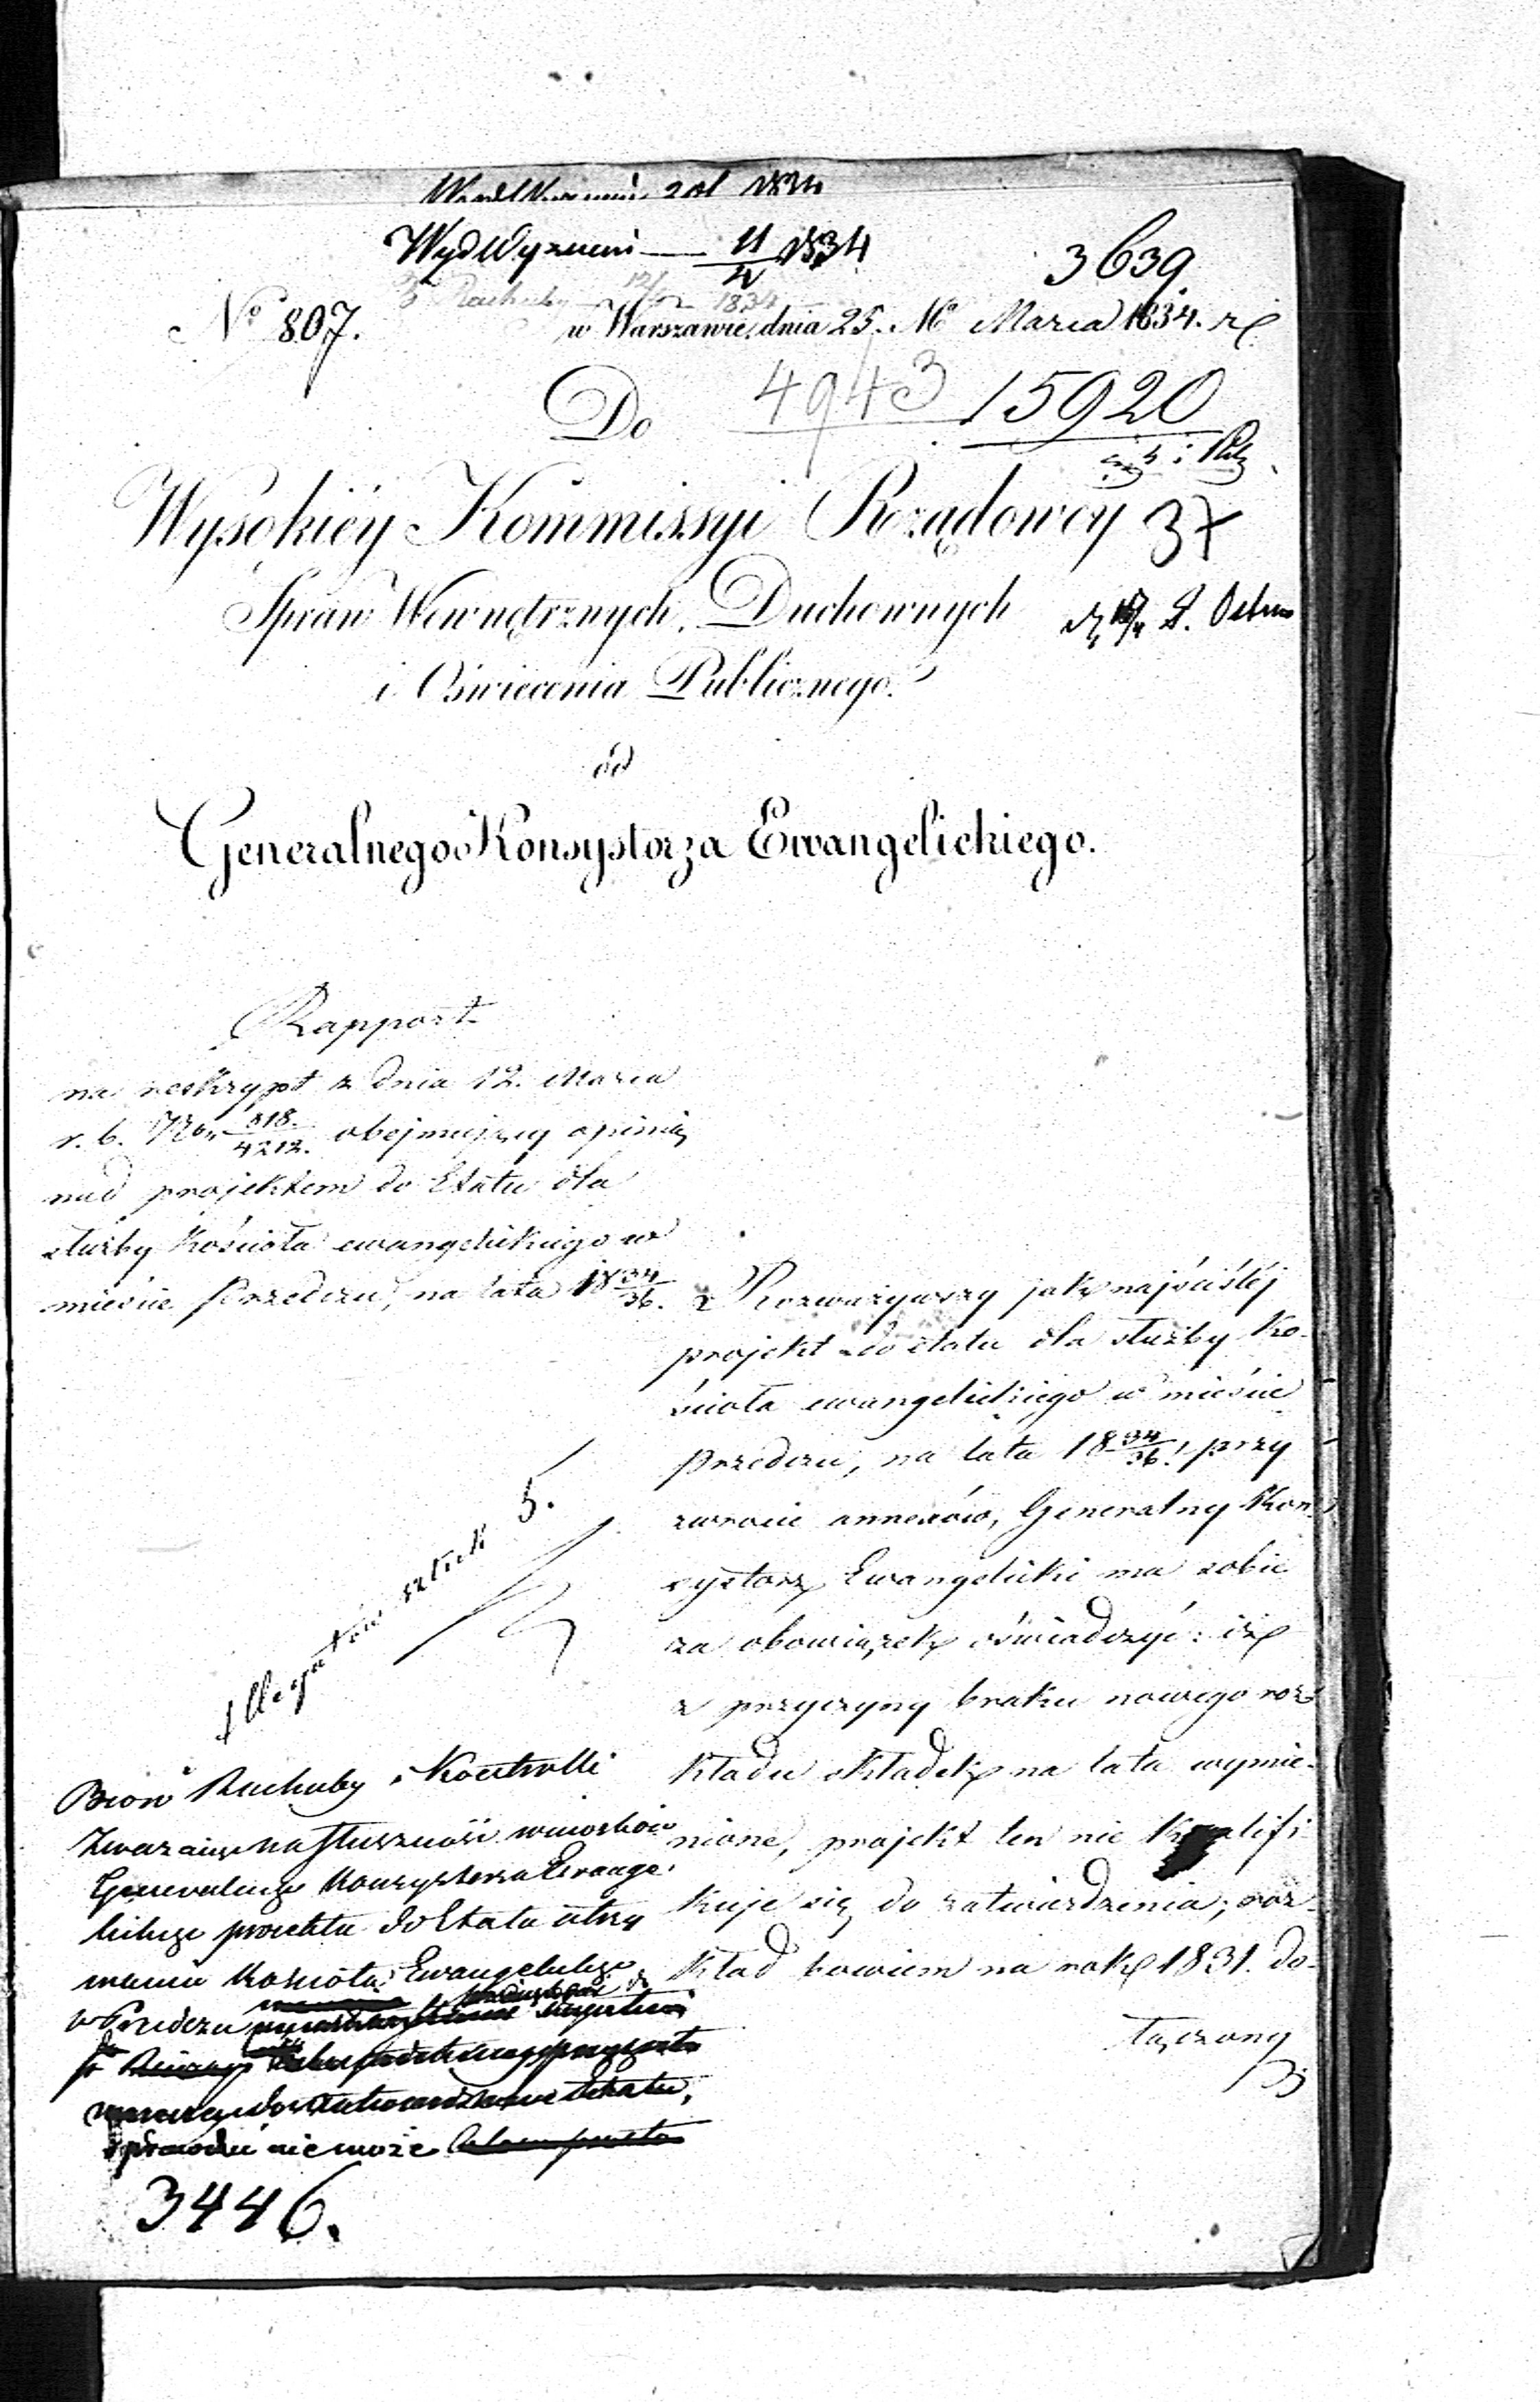 1834
Wyd Wyznań — 11/4 1834
3639
No 807.
w Warszawie, dnia 25. Marca 1834. r.
Do
4943 15920
Wysokiéy Kommissyi Rządowéy 37
Spraw Wewnętrznych, Duchownych
i Oświecenia Publicznego.
od
Generalnego Konsystorza Ewangelickiego.
Rapport
na reskrypt z dnia 12. Marca
r. b. Nro 818./4212. obejmujący opinią
nad projektem do Etatu dla
służby Kościoła ewangelickiego w
mieście Przedczu, na lata 18 34/36.
Rozważywszy jak najściśléj
projekt do etatu dla służby Ko-
ścioła ewangelickiego w mieście
Przedczu, na lata 18 34/36, przy
zwrocie annexów, Generalny Kon-
systorz Ewangelicki ma sobie
za obowiązek oświadczyć: iż
z przyczyny braku nowego roz-
kładu składek na lata wymie-
nione, projekt ten nie kwalifi-
kuje się do zatwierdzenia; roz-
kład bowiem na rok 1831. do-
łączony
Allegatów sztuk 5.
Biór Rachuby i Kontrolli
Zważając na słuszność wniosków
Generalnego Konsystorza Ewange
lickiego projektu do Etatu utrzy
mania Kościoła Ewangelickiego
w Przedczu
nie może
3446.